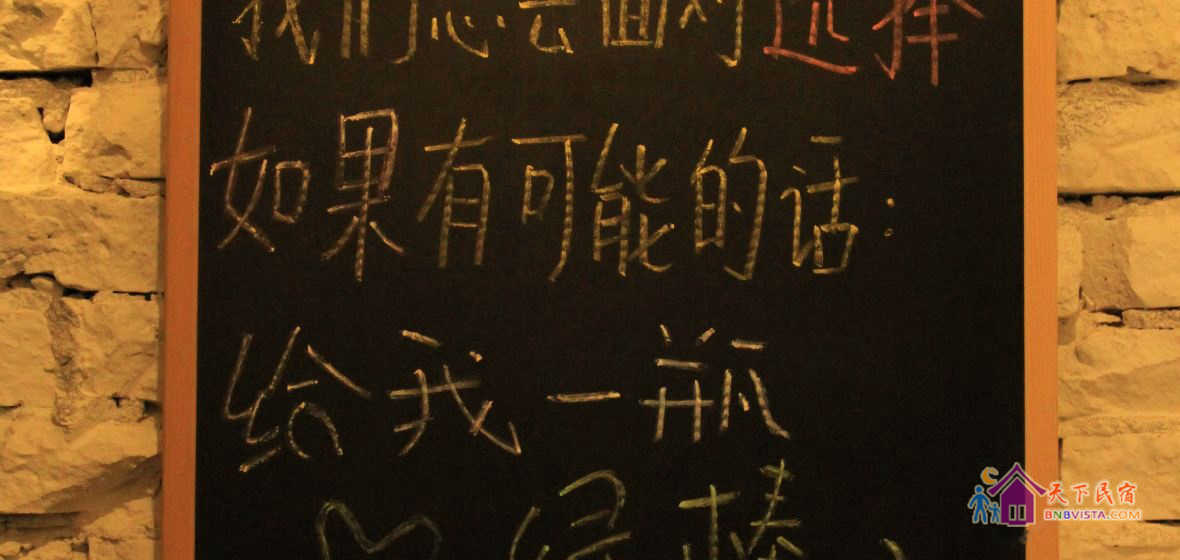 我们总会面对选择
如果有可能的话：
给我一瓶
天下民宿
BNBVISTA.COM